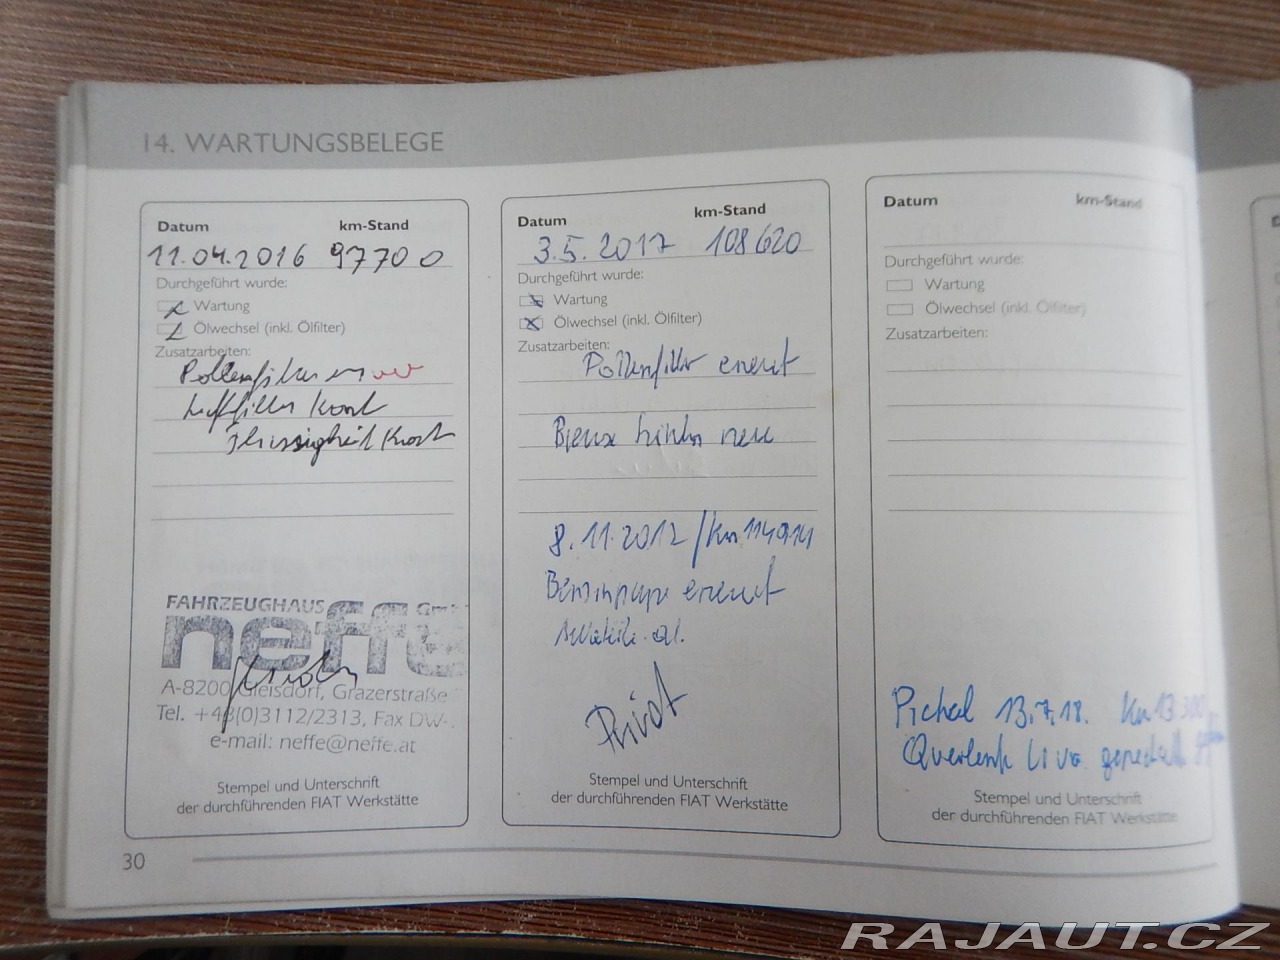 14. WARTUNGSBELEGE
Datum km-Stand
11.04.2016 97700
Durchgeführt wurde:
Wartung
Ölwechsel (inkl. Ölfilter)
Zusatzarbeiten:
Pollenfilter
Luftfilter Kont
Flüssigkeit Kont
FAHRZEUGHAUS
neffe
A-8200 Gleisdorf, Grazerstraße
Tel. +43(0)3112/2313, Fax DW-
e-mail: neffe@neffe.at
Stempel und Unterschrift
der durchführenden FIAT Werkstätte
Datum km-Stand
3.5.2017 108620
Durchgeführt wurde:
Wartung
Ölwechsel (inkl. Ölfilter)
Zusatzarbeiten:
Pollenfilter erneut
hinten neu
8.11.2017/Km 114914
erneut
Privat
Stempel und Unterschrift
der durchführenden FIAT Werkstätte
Datum km-Stand
Durchgeführt wurde:
Wartung
Ölwechsel (inkl. Ölfilter)
Zusatzarbeiten:
Pickal 13.7.18. Km
Querlenk Li
Stempel und Unterschrift
der durchführenden FIAT Werkstätte
30
RAJAUT.CZ